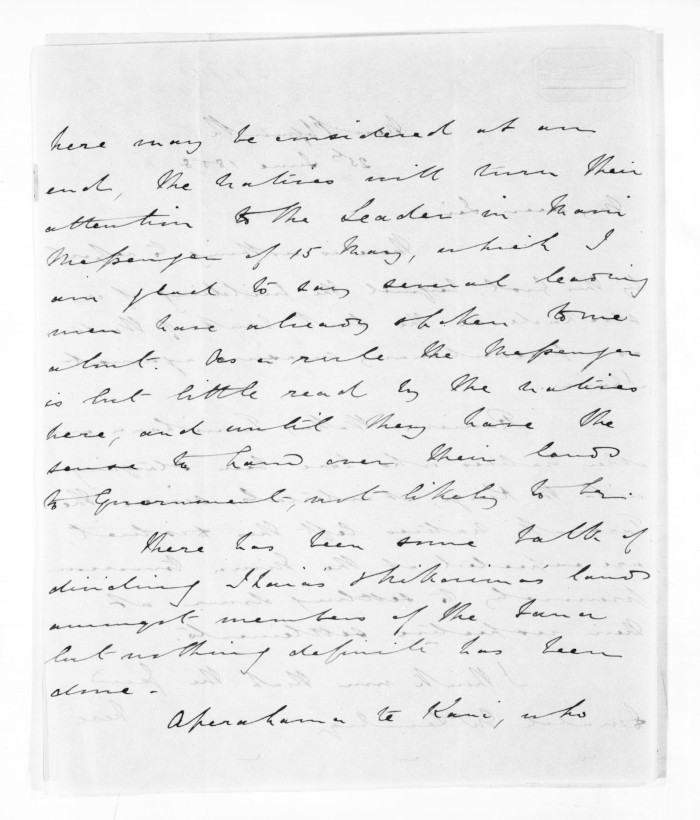 here may be considered at an
end, the natives will turn their
attention to the Leader in Maori
Messenger of 15 May, which I
am glad to say several leading
men have already spoken to me
about. As a rule the Messenger
is but little read by the natives
here, and until they have the
sense to hand over their lands
to Government, not likely to be.
There has been some talk of
dividing Ihaias & Nikorimas lands
amongst members of the
but nothing definite has been
done -
Aperahama te Kani, who